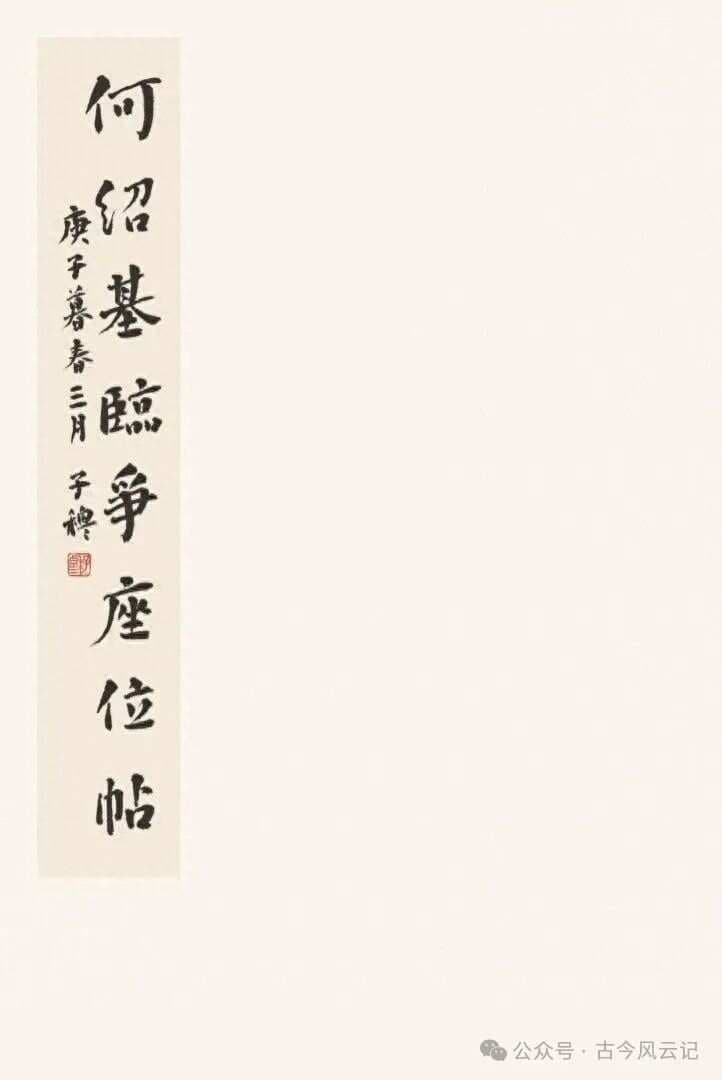 何紹基臨爭座位帖
庚子暮春三月 子穆
公众号·古今风云记